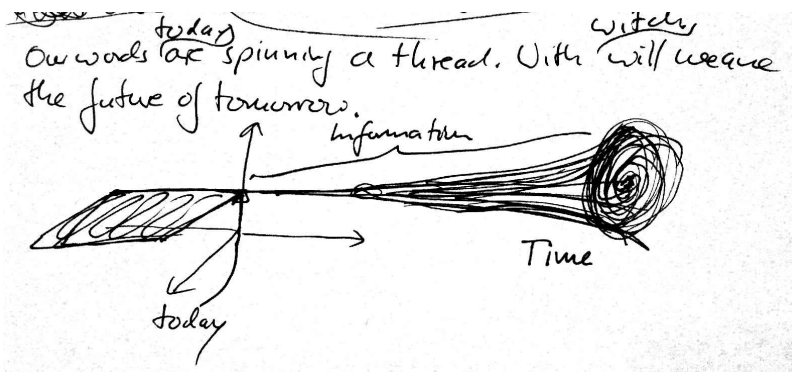 today witch
Our words are spinning a thread. With will weave
the future of tomorrow.
Information
Time
today